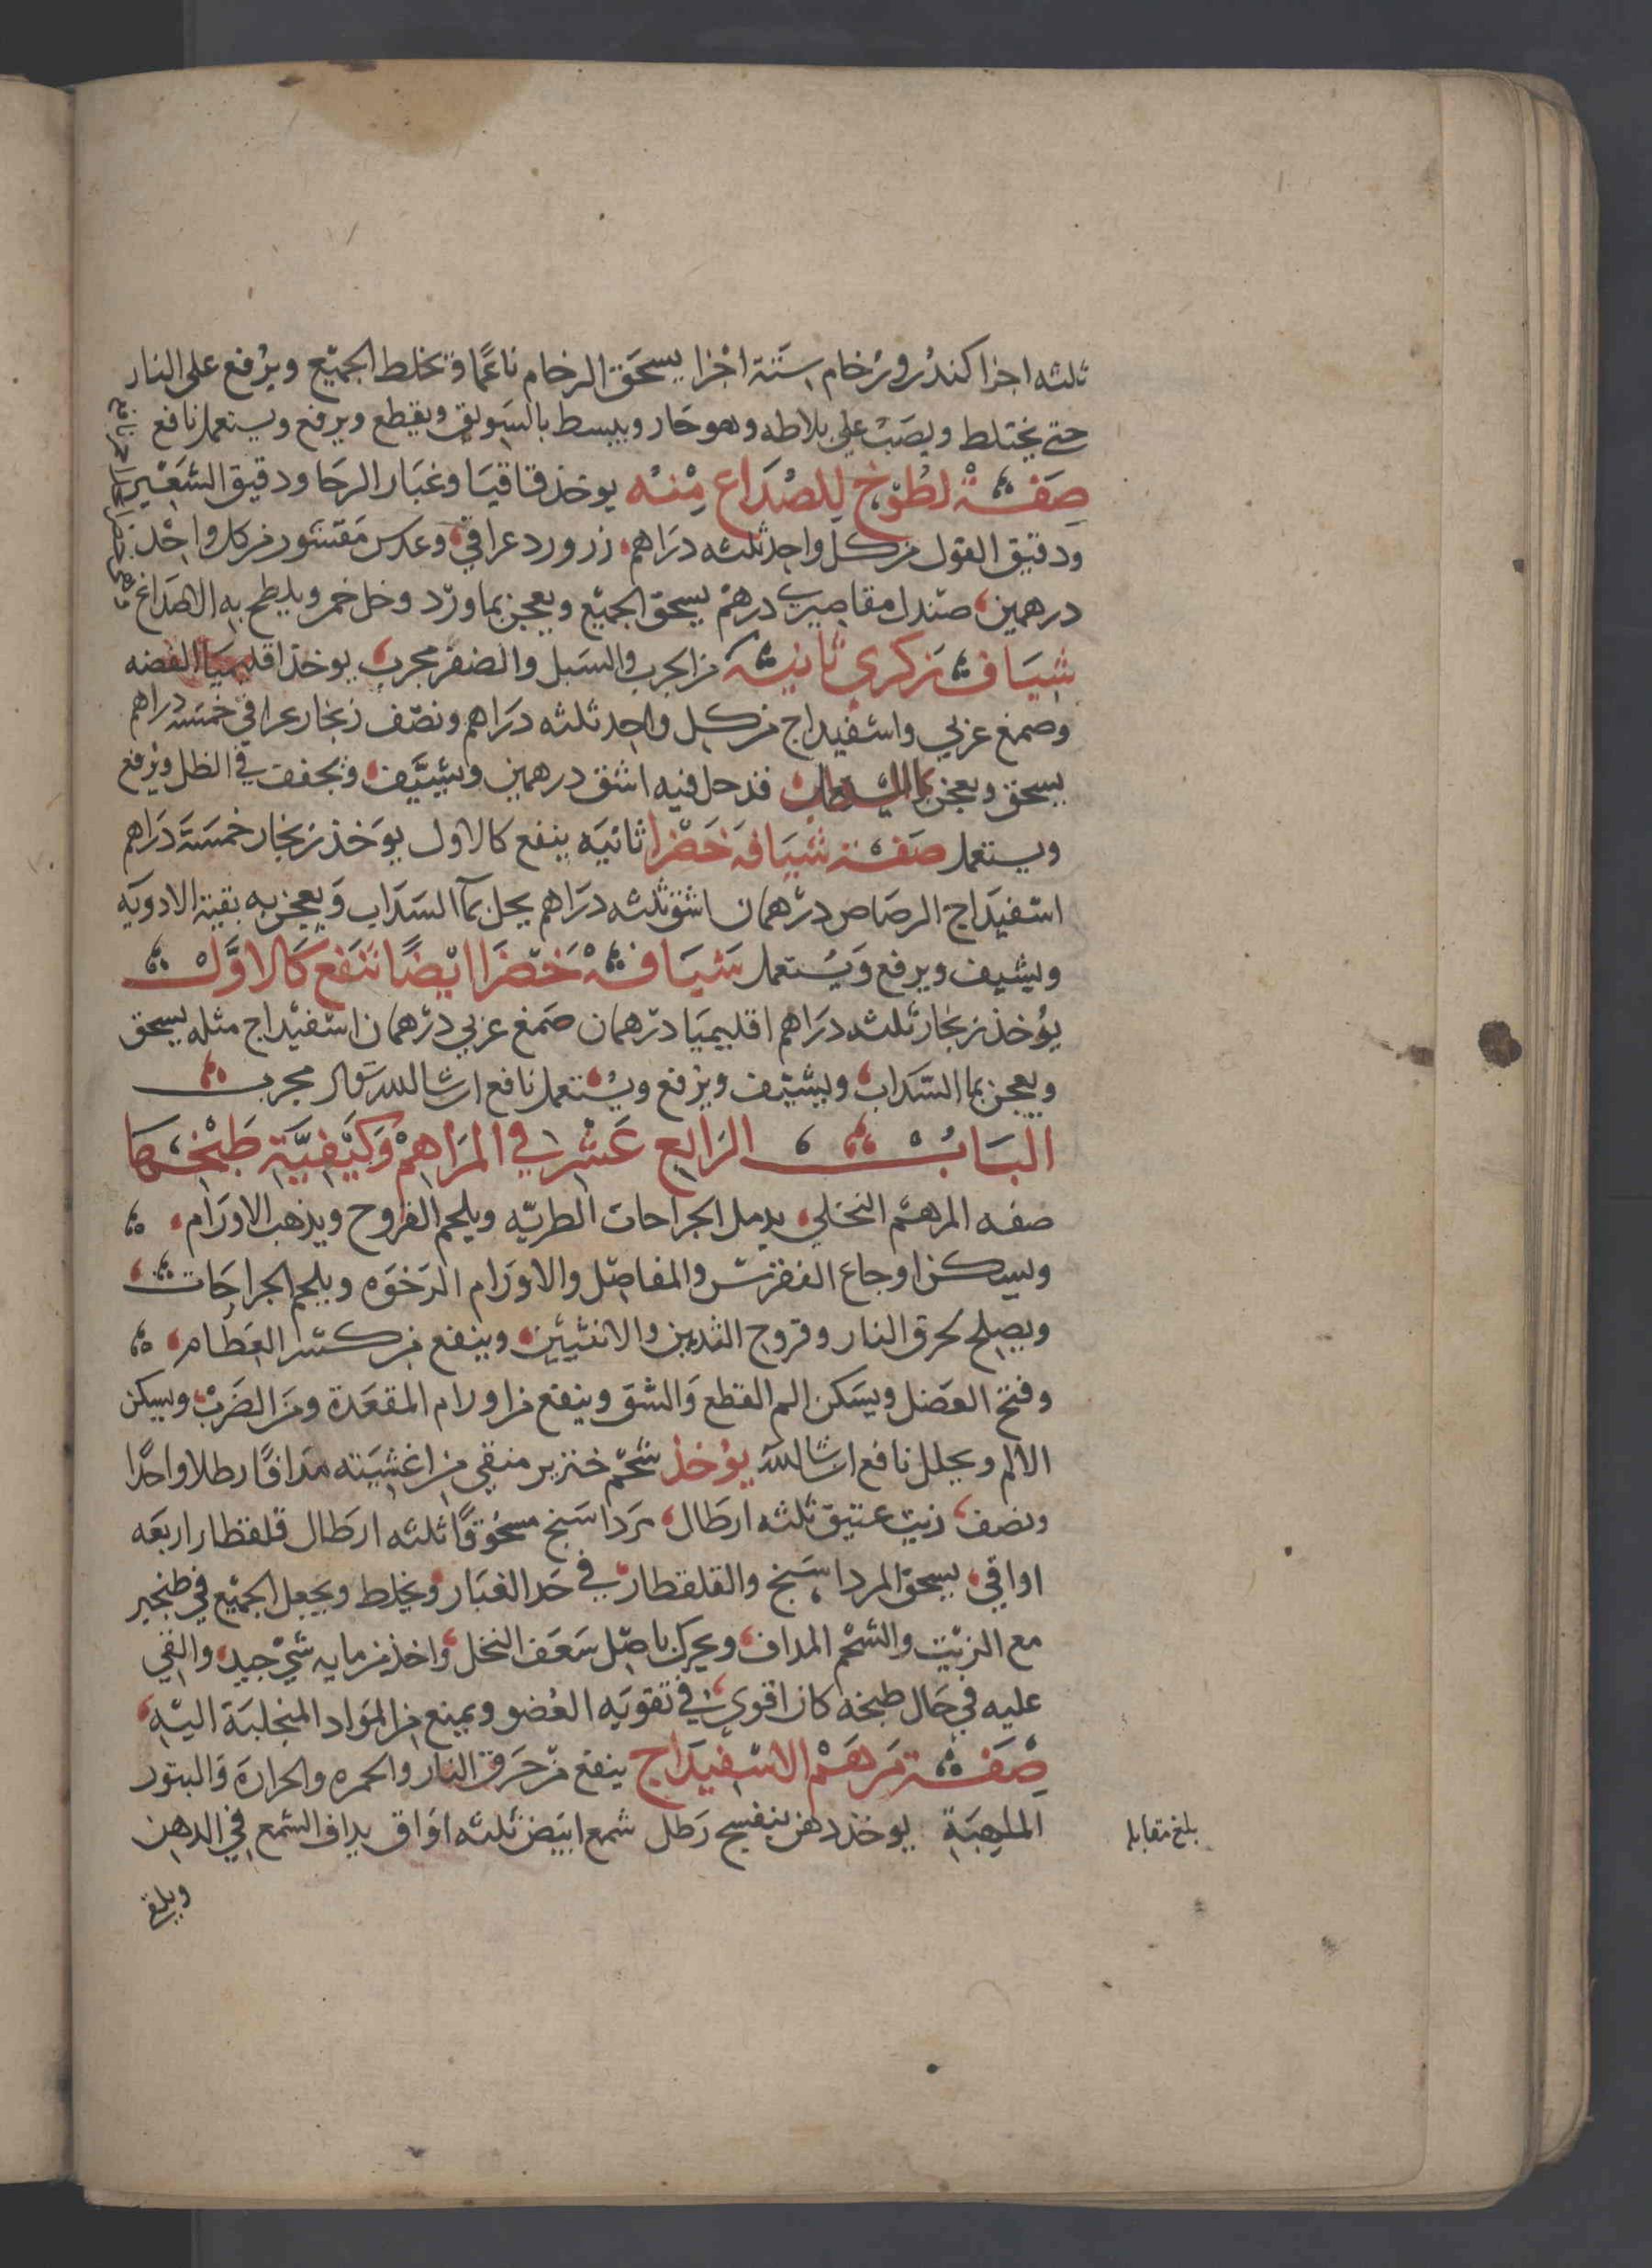 ثلثه اجزا كندر ورخام ستة اجزا يسحق الرخام ناعما وتخلط الجميع ويرفع على النار
حتى يختلط ويصب على بلاطه وهو حار ويبسط بالسويق ويقطع ويرفع ويستعمل نافع
صفة لطوخ للصداع منه يوخذ قاقيا وغبار الرحا ودقيق الشعير
ودقيق الفول من كل واحد ثلثه دراهم زر ورد عراقي وعدس مقشور من كل واحد
درهمين صندل مقاصيري درهم يسحق الجميع ويعجن بماورد وخل خمر ويلطخ به الاصداغ
شياف زكري ثانية من الجرب والسبل والضفر مجرب يوخذ اقليميا الفضه
وصمغ عربي واسفيداج من كل واحد ثلثه دراهم ونصف زنجار عراقي خمسه دراهم
يسحق ويعجن بما السداب قد حل فيه اشق درهمين ويشيف ويجفف في الظل ويرفع
ويستعمل صفة شيافه خضرا ثانيه ينفع كالاول يوخذ زنجار خمسة دراهم
اسفيداج الرصاص درهمان اشق ثلثه دراهم يحل بما السداب ويعجن به بقية الادويه
ويشيف ويرفع ويستعمل شيافة خضرا ايضا تنفع كالاول
يوخذ زنجار ثلثه دراهم اقليميا درهمان صمغ عربي درهمان اسفيداج مثله يسحق
ويعجن بما السداب ويشيف ويرفع ويستعمل نافع ان شا الله تعالى مجرب
الباب الرابع عشر في المراهم وكيفية طبخها
صفه المرهم النخلي يدمل الجراحات الطريه ويلحم القروح ويذهب الاورام
ويسكن اوجاع النقرس والمفاصل والاورام الرخوه ويلحم الجراحات
ويصلح لحرق النار وقروح الثديين والانثيين وينفع من كسر العظام
وفتح العضل ويسكن الم القطع والشق وينفع من اورام المقعدة ومن الضرب ويسكن
الالم ويحلل نافع ان شا الله يوخذ شحم خنزير منقى من اغشيته مدافا رطلا واحدا
ونصف زيت عتيق ثلثه ارطال مرداسنج مسحوقا ثلثه ارطال قلقطار اربعه
اواقي يسحق المرداسنج والقلقطار في حد الغبار ويخلط ويجعل الجميع في طنجير
مع الزيت والشحم المداف ويحرك باصل سعف النخل واخذ من مايه شي جيد والقي
عليه في حال طبخه كان اقوى في تقويه العضو ويمنع من المواد المنجلبة اليه
صفة مرهم الاسفيداج ينفع من حرق النار والحمره والحرارة والبثور
الملهبة يوخذ دهن بنفسج رطل شمع ابيض ثلثه اواق يداف الشمع في الدهن
بلغ مقابله
ويلقى